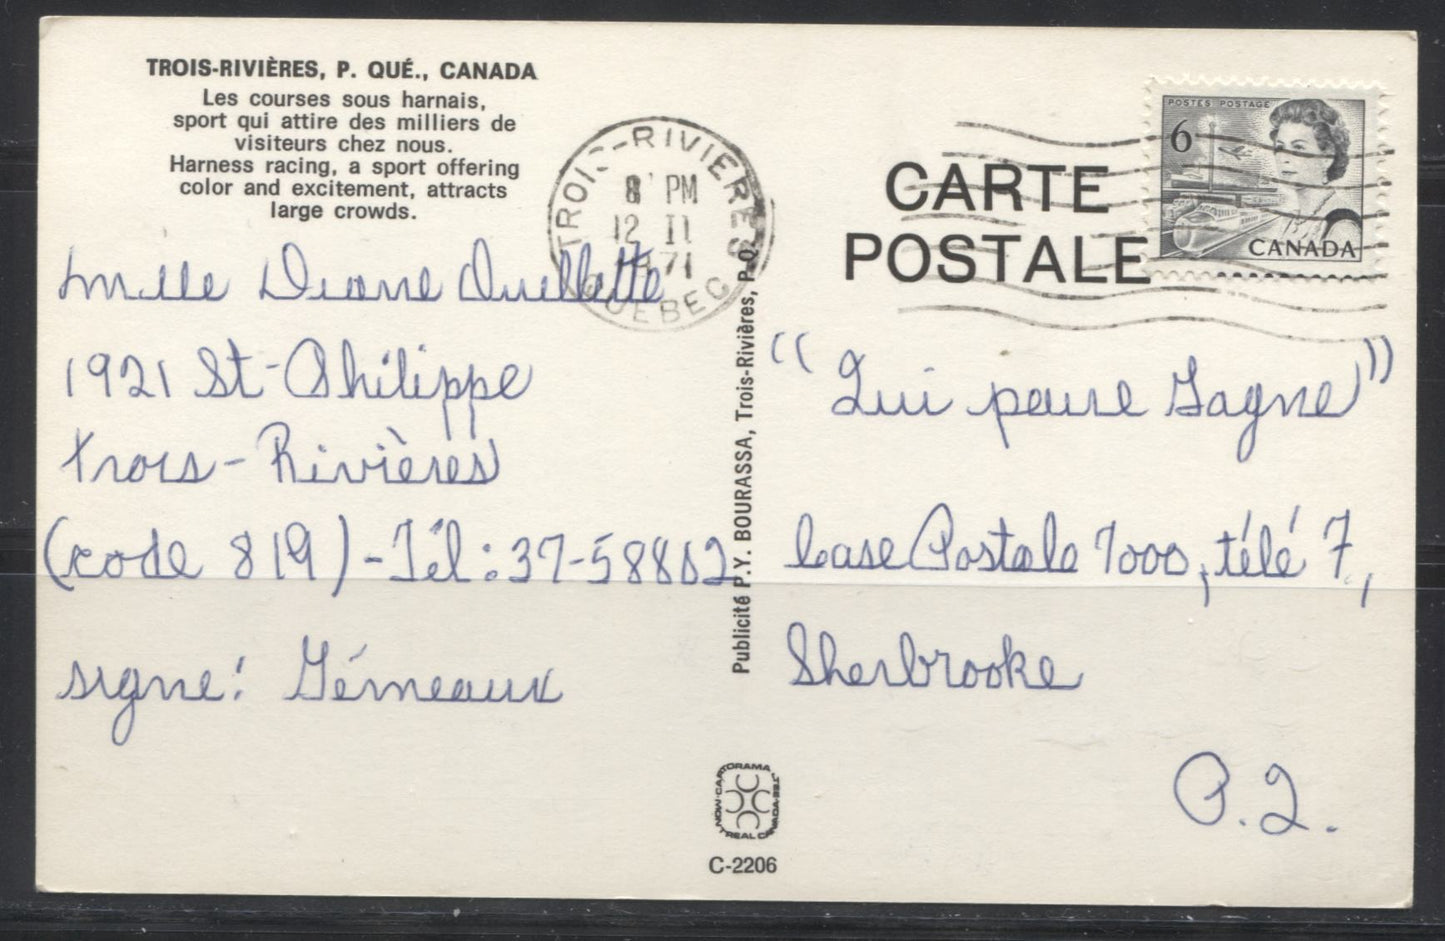 TROIS-RIVIÈRES, P. QUÉ., CANADA
Les courses sous harnais,
sport qui attire des milliers de
visiteurs chez nous.
Harness racing, a sport offering
color and excitement, attracts
large crowds.
TROIS-RIVIERES
8 PM
12 II
1971
QUEBEC
CARTE
POSTALE
POSTES POSTAGE
6
CANADA
Mlle Diane Ouellette
1921 St-Philippe
Trois-Rivières
(code 819)-Tél: 37-58802
signe: Gémeaux
Publicité P.Y. BOURASSA, Trois-Rivières, P.Q.
"Qui perd Gagne"
Case Postale 7000, télé 7,
Sherbrooke
P.Q.
C-2206